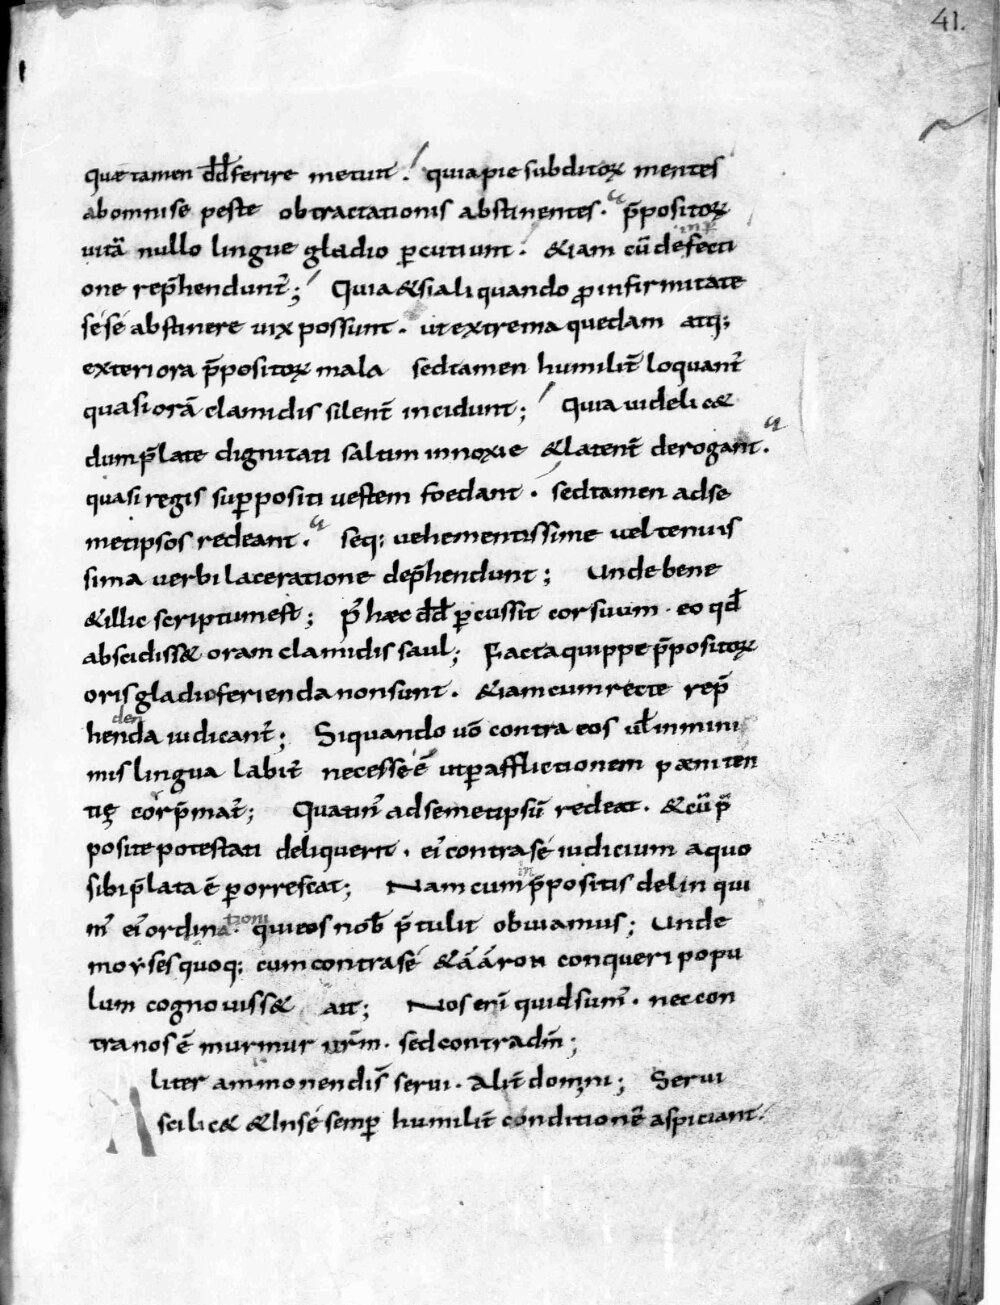 41.
quæ tamen dd̄ ferire metuit. quia pie subditoꝝ mentes
ab omni se peste obtractationis abstinentes. p̄positoꝝ
uitā nullo lingue gladio ꝑcutiunt. &iam cū de inꝑfecti
one rep̄hendunt᷑; Quia & si aliquando ꝓ infirmitate
sése abstinere uix possunt. ut extrema quedam atq;
exteriora p̄positoꝝ mala sed tamen humilit᷑ loquant᷑
quasi orā clamidis silent᷑ incidunt; Quia uidelic&
dum p̄late dignitati saltim innoxie & latent᷑ derogant.
quasi regis suꝑpositi uestem foedant. sed tamen ad se
metipsos redeant. seq; uehementissime uel tenuis
sima uerbi laceratione dep̄hendunt; Unde bene
& illic scriptum est; p᷑ hæc dd̄ ꝑcussit cor suum. eo qđ
abscidiss& oram clamidis saul; Facta quippe p̄positoꝝ
oris gladio ferienda non sunt. &iam cum recte rep̄
henden
da iudicant᷑; Si quando uō contra eos ul̄ in mini
mis lingua labit᷑ necesse ē ut ꝑ afflictionem pæniten
tię cor p̄mat᷑; Quatin᷑ ad semetipsū redeat. & cū p̄
posite potestati deliquerit. ei᷑ contra sé iudicium a quo
sibi p̄lata ē ꝑorrescat; Nam cum in p̄positis delinqui
m᷑ ei᷑ ordinationi qui eos nob̄ p̄tulit obuiamus; Unde
moyses quoq; cum contra sé & ááron conqueri popu
lum cognouiss& ait; Nos eni᷑ quid sum᷑. nec con
tra nos ē murmur ur̄m. sed contra dm̄;
Aliter ammonendis᷑ serui. Alit᷑ domini; Serui
scilic& & In sé semꝑ humilit᷑ conditionē aspiciant.